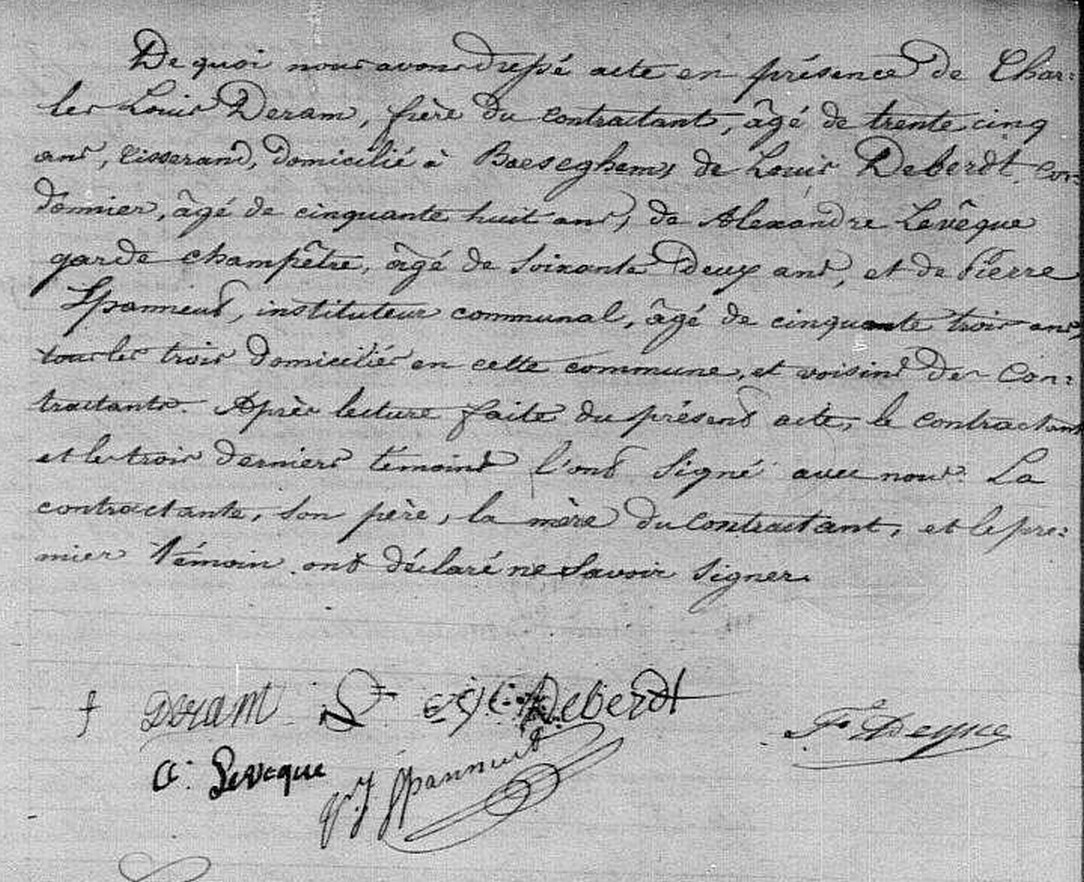 De quoi nous avons dressé acte en présence de Char=
les Louis Deram, frère du contractant, âgé de trente cinq
ans, tisserand, domicilié à Boeseghem, de Louis Deberdt, cor=
donnier, âgé de cinquante huit ans, de Alexandre Levêque
garde champêtre, âgé de soixante deux ans, et de Pierre
Spanneut, instituteur communal, âgé de cinquante trois ans,
tous les trois domiciliés en cette commune, et voisins des con=
tractants. Après lecture faite du présent acte, le contractant
et les trois derniers témoins l'ont signé avec nous. La
contractante, son père, la mère du contractant, et le pre=
mier témoin ont déclaré ne savoir signer.
f Deram L Deberdt
A. Leveque
Spanneut